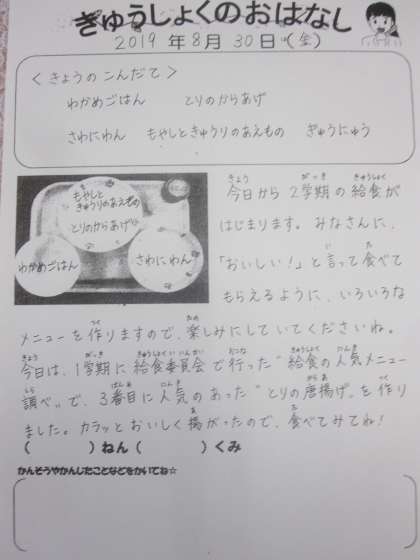 きゅうしょくのおはなし
2019 年 8 月 30 日 (金)
<きょうのこんだて>
わかめごはん とりのからあげ
さわにわん もやしときゅうりのあえもの ぎゅうにゅう
もやしと
きゅうりのあえもの
とりのからあげ
わかめごはん
さわにわん
今日から2学期の給食が
はじまります。みなさんに、
「おいしい!」と言って食べて
もらえるように、いろいろな
メニューを作りますので、楽しみにしていてくださいね。
今日は、1学期に給食委員会で行った"給食の人気メニュー
調べ"で、3番目に人気のあった"とりの唐揚げ"を作り
ました。カラッとおいしく揚がったので、食べてみてね!
( )ねん( )くみ
かんそうやかんじたことなどをかいてね☆